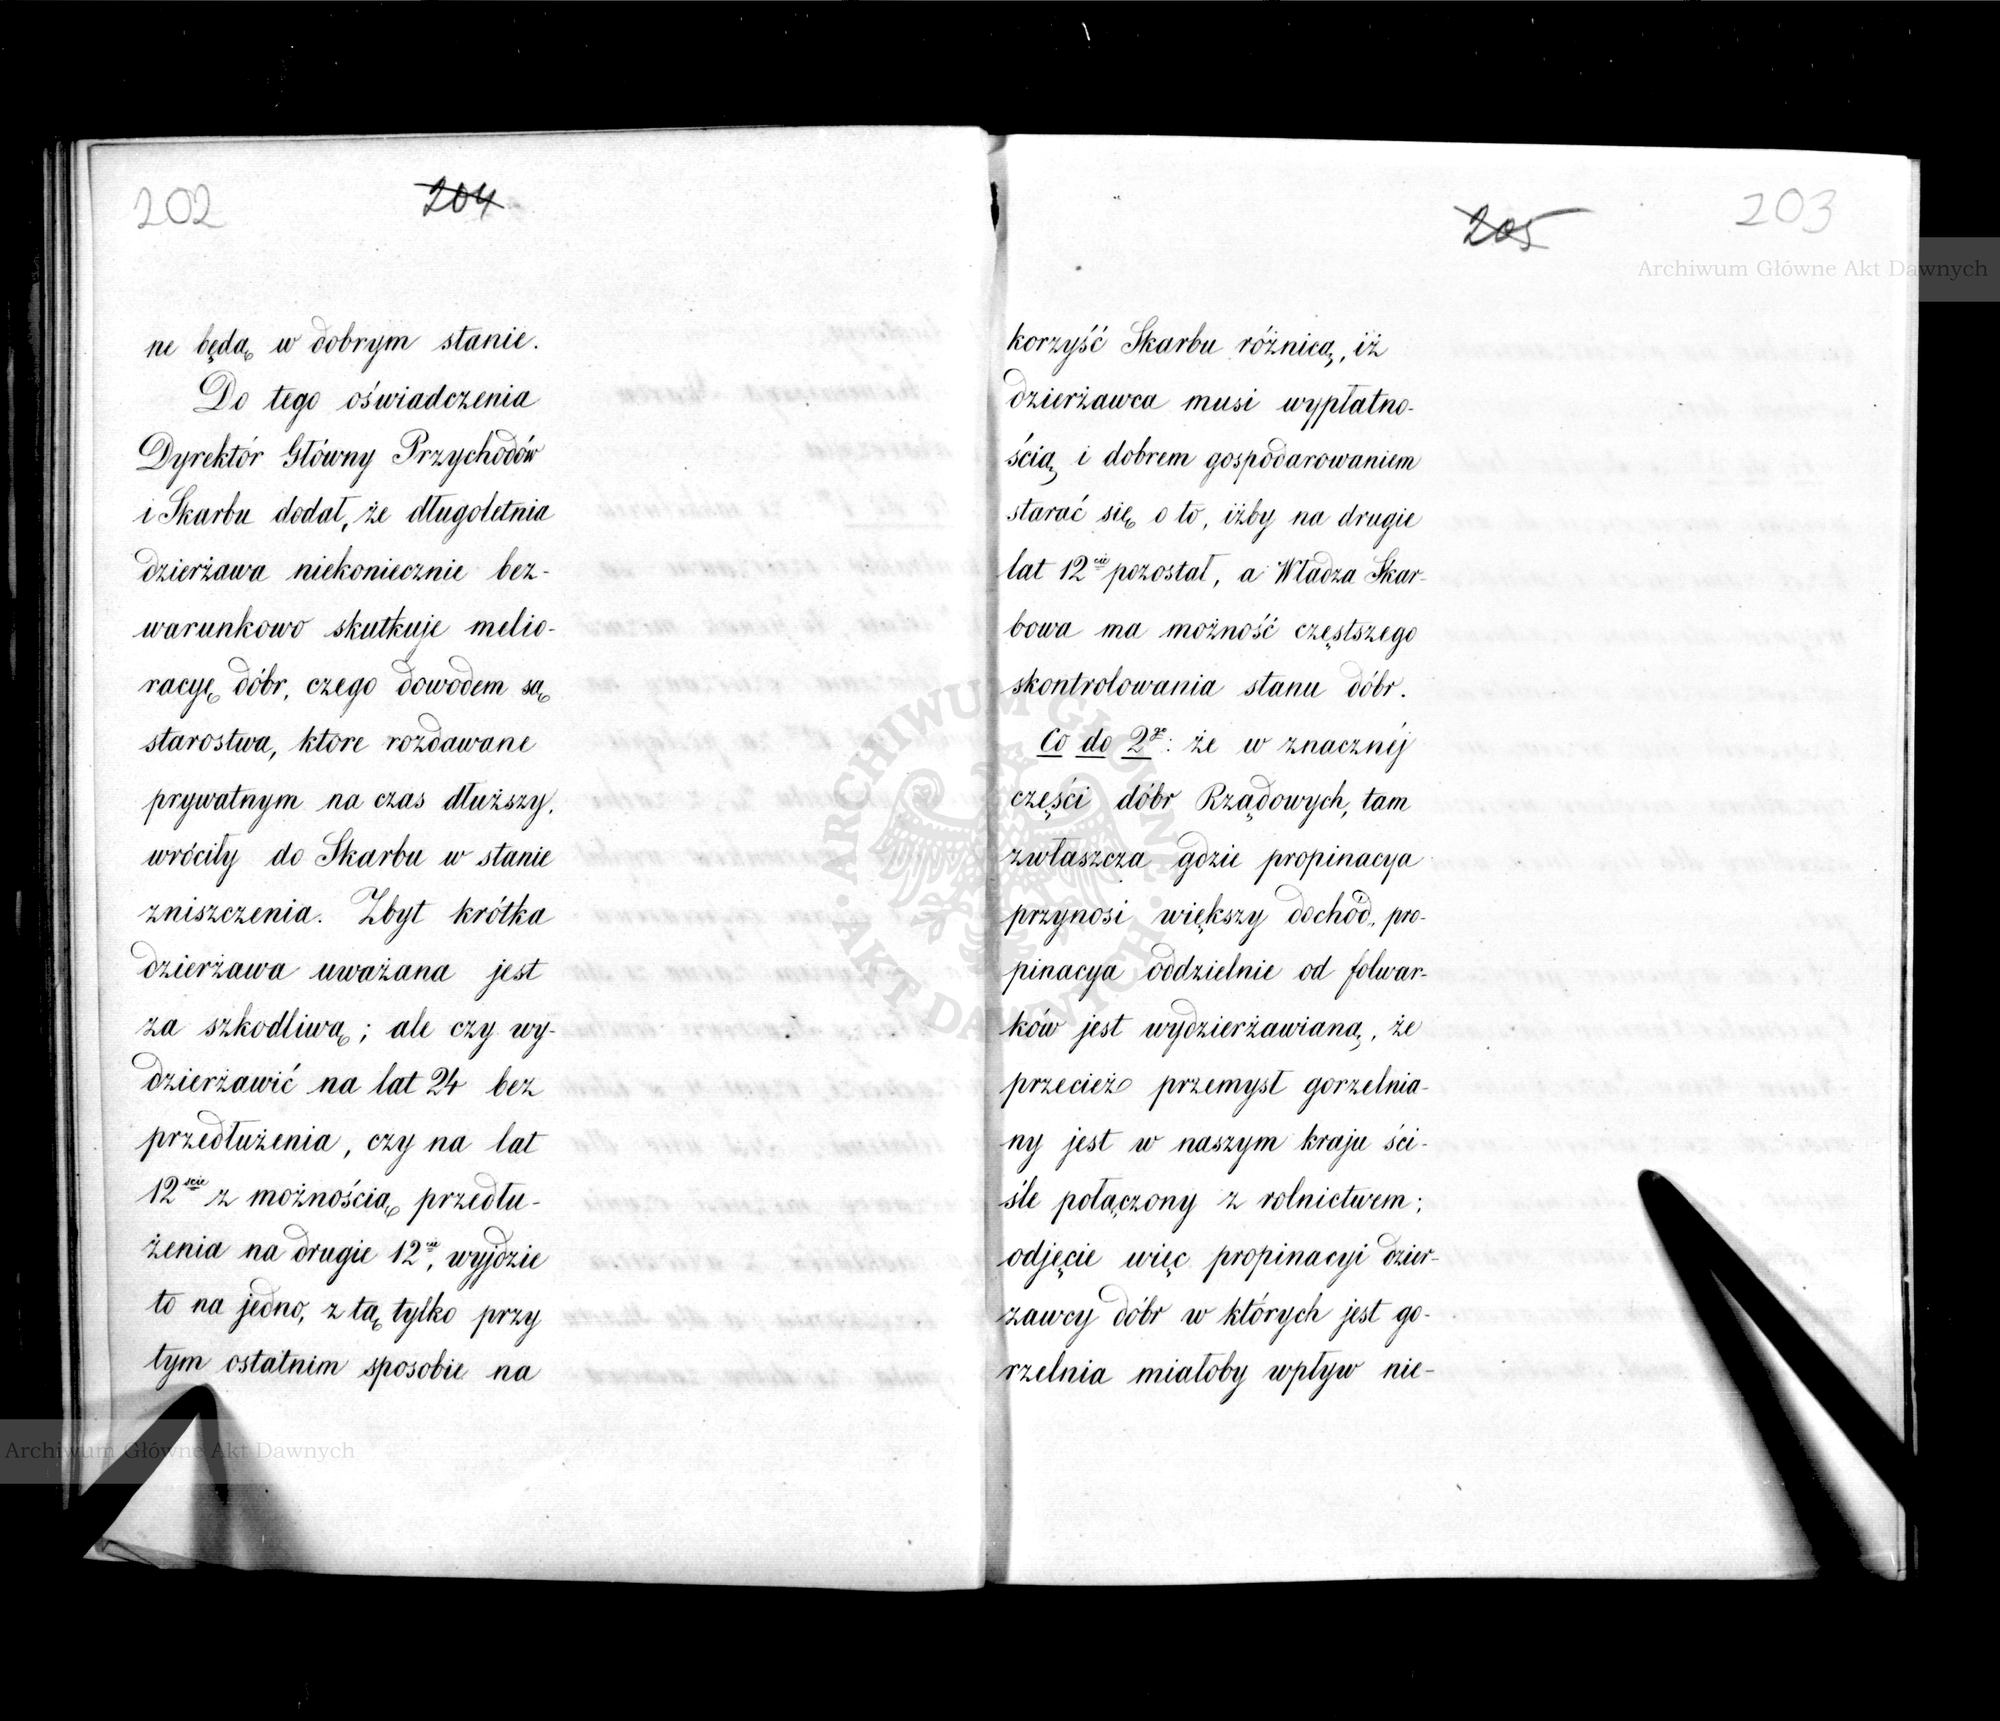 202
204
ne będą w dobrym stanie.
Do tego oświadczenia
Dyrektór Główny Przychodów
i Skarbu dodał, że długoletnia
dzierżawa niekoniecznie bez-
warunkowo skutkuje melio-
racyę dóbr, czego dowodem są
starostwa, które rozdawane
prywatnym na czas dłuższy,
wróciły do Skarbu w stanie
zniszczenia. Zbyt krótka
dzierżawa uważana jest
za szkodliwą; ale czy wy-
dzierżawić na lat 24 bez
przedłużenia, czy na lat
12ście z możnością przedłu-
żenia na drugie 12cie, wyjdzie
to na jedno, z tą tylko przy
tym ostatnim sposobie na
205
203
korzyść Skarbu różnicą, iż
dzierżawca musi wypłatno-
ścią i dobrem gospodarowaniem
starać się o to, iżby na drugie
lat 12cie pozostał, a Władza Skar-
bowa ma możność częstszego
skontrolowania stanu dóbr.
Co do 2go: że w znacznéj
części dóbr Rządowych, tam
zwłaszcza gdzie propinacya
przynosi większy dochód, pro-
pinacya oddzielnie od folwar-
ków jest wydzierżawianą, że
przecież przemysł gorzelnia-
ny jest w naszym kraju ści-
śle połączony z rolnictwem;
odjęcie więc propinacyi dzier-
zawcy dóbr w których jest go-
rzelnia miałoby wpływ nie-
Archiwum Główne Akt Dawnych
Archiwum Główne Akt Dawnych
ARCHIWUM GŁÓWNE
AKT DAWNYCH